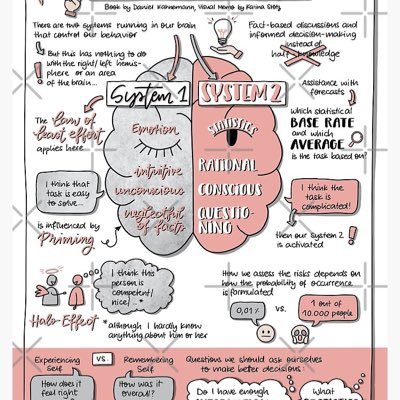 Book by Daniel Kahnemann, Visual Memo by Karina
There are two systems running in our brain
that control our behavior
But this has nothing to do
with the right/left hemis-
phere or an area
of the brain...
Fact-based discussions and
informed decision-making
instead of
half knowledge
Assistance with
forecasts
which statistical
BASE RATE
and which
AVERAGE
is the task based on?
System 1
SYSTEM 2
The law of
least effort
applies here
Emotion
intuitive
unconscious
neglectful
of facts
STATISTICS
RATIONAL
CONSCIOUS
QUESTIO-
NING
I think that
task is easy
to solve...
is influenced by
Priming
I think the
task is
complicated!
then our System 2
is activated
I think this
person is
competent/
nice/...*
Halo Effect
*although I hardly know
anything about him or her
How we assess the risks depends on
how the probability of occurrence
is formulated
0,01%
vs.
1 out of
10.000 people
Experiencing
Self
vs.
Remembering
Self
How does it
feel right
How was it
overall?
Questions we should ask ourselves
to make better decisions:
Do I have enough
What